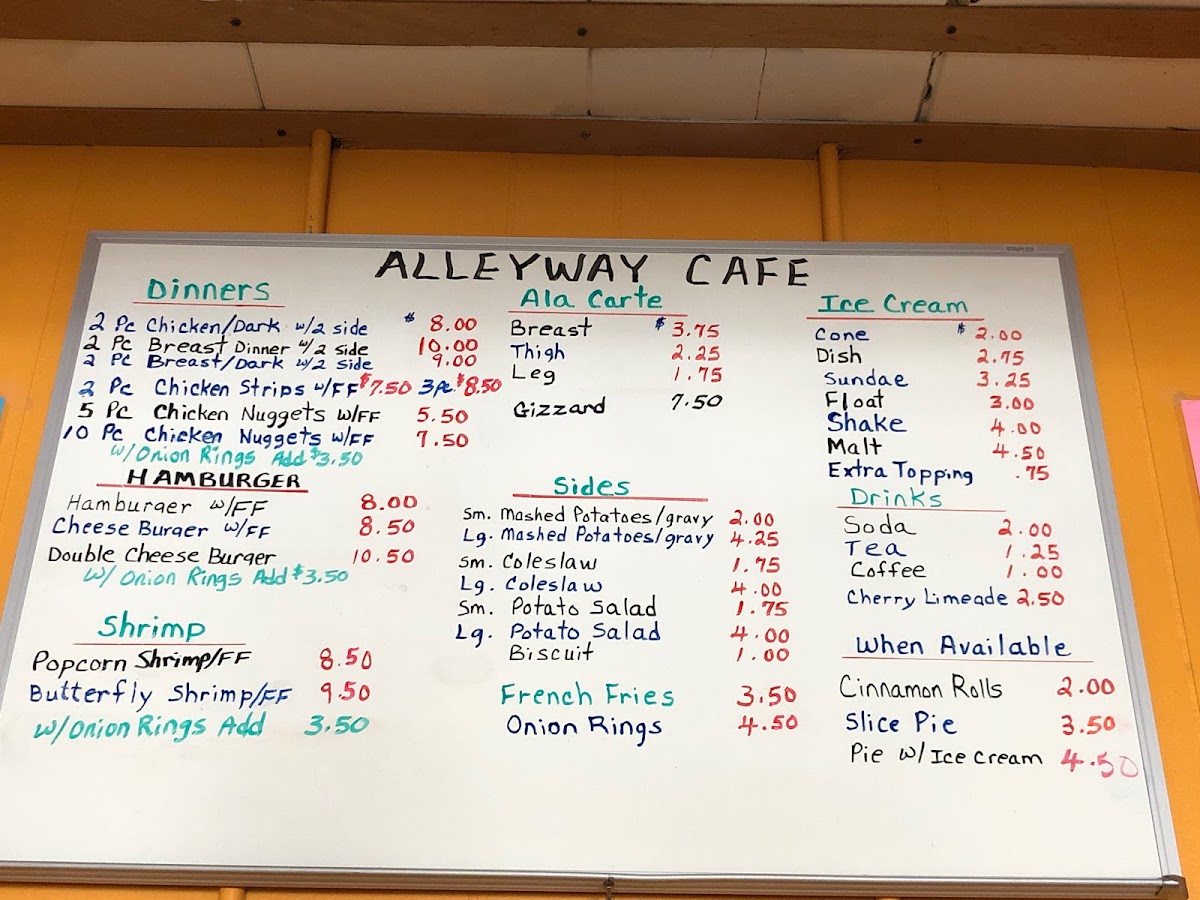 ALLEYWAY CAFE
Dinners
2 Pc Chicken/Dark w/2 side $ 8.00
2 Pc Breast Dinner w/2 side 10.00
2 Pc Breast/Dark w/2 side 9.00
2 Pc Chicken Strips w/FF $7.50 3pc. $8.50
5 Pc Chicken Nuggets w/FF 5.50
10 Pc Chicken Nuggets w/FF 7.50
w/Onion Rings Add $3.50
HAMBURGER
Hamburger w/FF 8.00
Cheese Burger w/FF 8.50
Double Cheese Burger 10.50
w/ Onion Rings Add $3.50
Shrimp
Popcorn Shrimp/FF 8.50
Butterfly Shrimp/FF 9.50
w/Onion Rings Add 3.50
Ala Carte
Breast $3.75
Thigh 2.25
Leg 1.75
Gizzard 7.50
Sides
Sm. Mashed Potatoes/gravy 2.00
Lg. Mashed Potatoes/gravy 4.25
Sm. Coleslaw 1.75
Lg. Coleslaw 4.00
Sm. Potato Salad 1.75
Lg. Potato Salad 4.00
Biscuit 1.00
French Fries 3.50
Onion Rings 4.50
Ice Cream
Cone $ 2.00
Dish 2.75
Sundae 3.25
Float 3.00
Shake 4.00
Malt 4.50
Extra Topping .75
Drinks
Soda 2.00
Tea 1.25
Coffee 1.00
Cherry Limeade 2.50
When Available
Cinnamon Rolls 2.00
Slice Pie 3.50
Pie w/Ice Cream 4.50
STAPLES